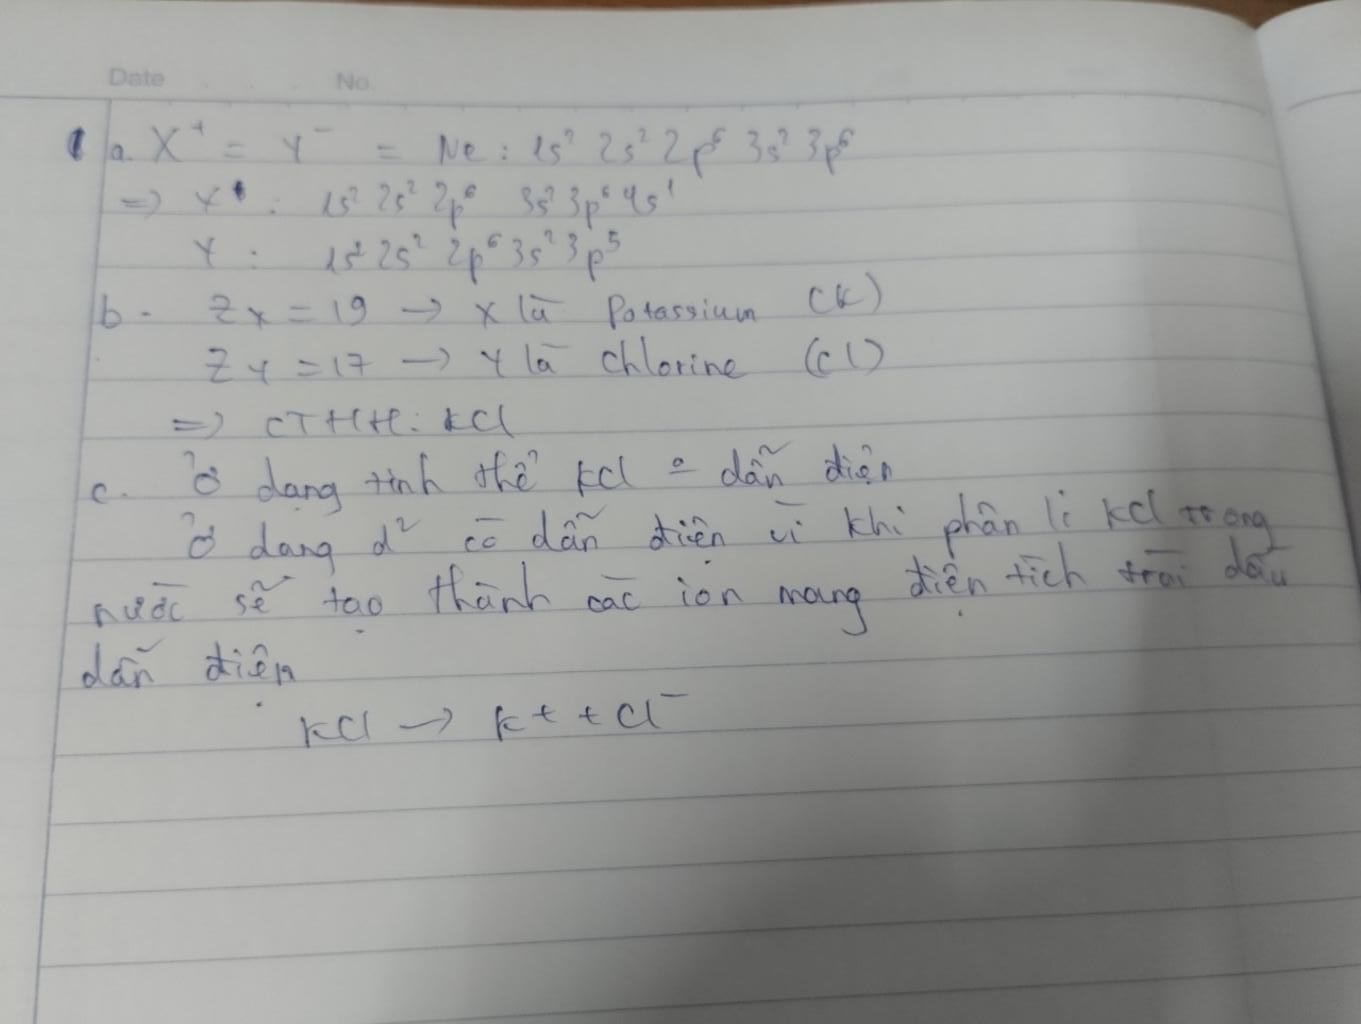 Date No.
1 a. X⁺ = Y⁻ = Ne : 1s² 2s² 2p⁶ 3s² 3p⁶
=> X : 1s² 2s² 2p⁶ 3s² 3p⁶ 4s¹
Y : 1s² 2s² 2p⁶ 3s² 3p⁵
b. Zx = 19 → X là Potassium (K)
Zy = 17 → Y là Chlorine (Cl)
=> CTHH: KCl
c. Ở dạng tinh thể KCl o dẫn điện
Ở dạng d² có dẫn điện vì khi phân li KCl trong
nước sẽ tạo thành các ion mang điện tích trái dấu
dẫn điện
KCl → K+ + Cl⁻